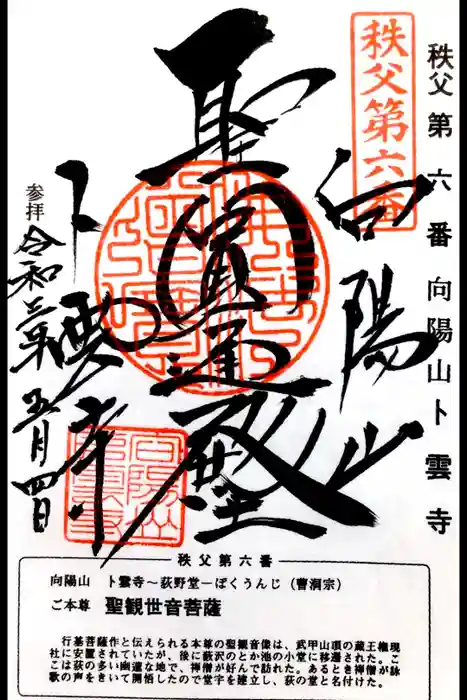 秩父第六番 向陽山卜雲寺
秩父第六番
向陽山
聖圓通殿
卜雲寺
参拝
令和三年
五月四日
秩父第六番
向陽山 卜雲寺～荻野堂－ぼくうんじ(曹洞宗)
ご本尊 聖観世音菩薩
行基菩薩作と伝えられる本尊の聖観音像は、武甲山頂の蔵王権現
社に安置されていたが、後に藪沢のとか池の小堂に移遷された。こ
こは荻の多い幽邃な地で、禅僧が好んで訪れた。あるとき禅僧が詠
歌の声をきいて開悟したので堂宇を建立し、荻の堂と名付けた。